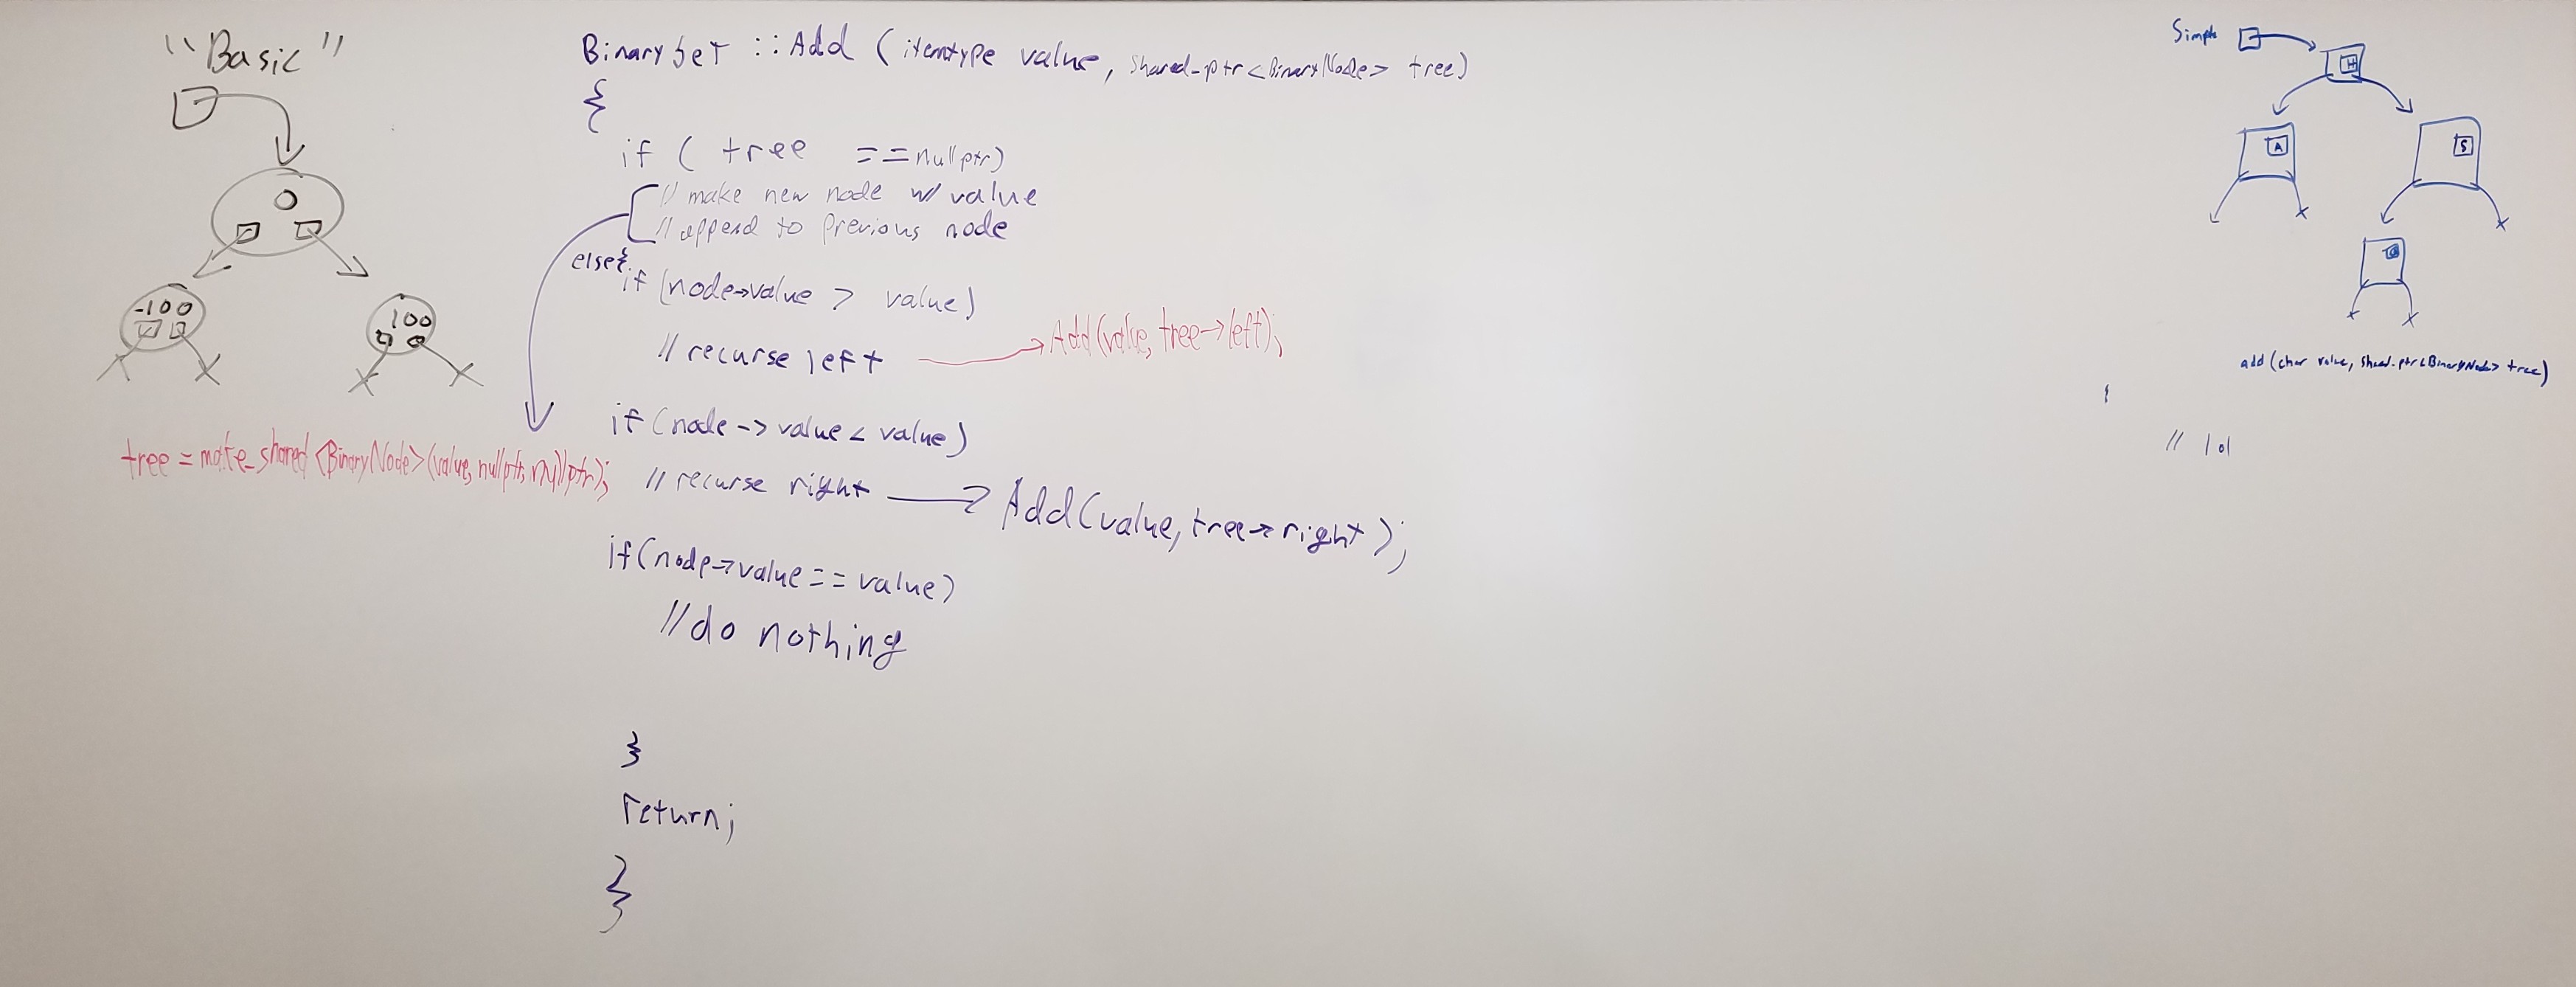 "Basic"
0
-100
100
BinarySet :: Add (itemtype value, shared_ptr<BinaryNode> tree)
{
if ( tree ==nullptr)
// make new node w/ value
// append to previous node
else{
if (node->value > value)
// recurse left
Add(value, tree->left);
tree = make_shared <BinaryNode>(value, nullptr, nullptr);
if (node -> value < value)
// recurse right
Add(value, tree->right);
if(node->value == value)
//do nothing
}
return;
}
Simple
H
A
S
add (char value, shared_ptr<BinaryNode> tree)
{
// lol